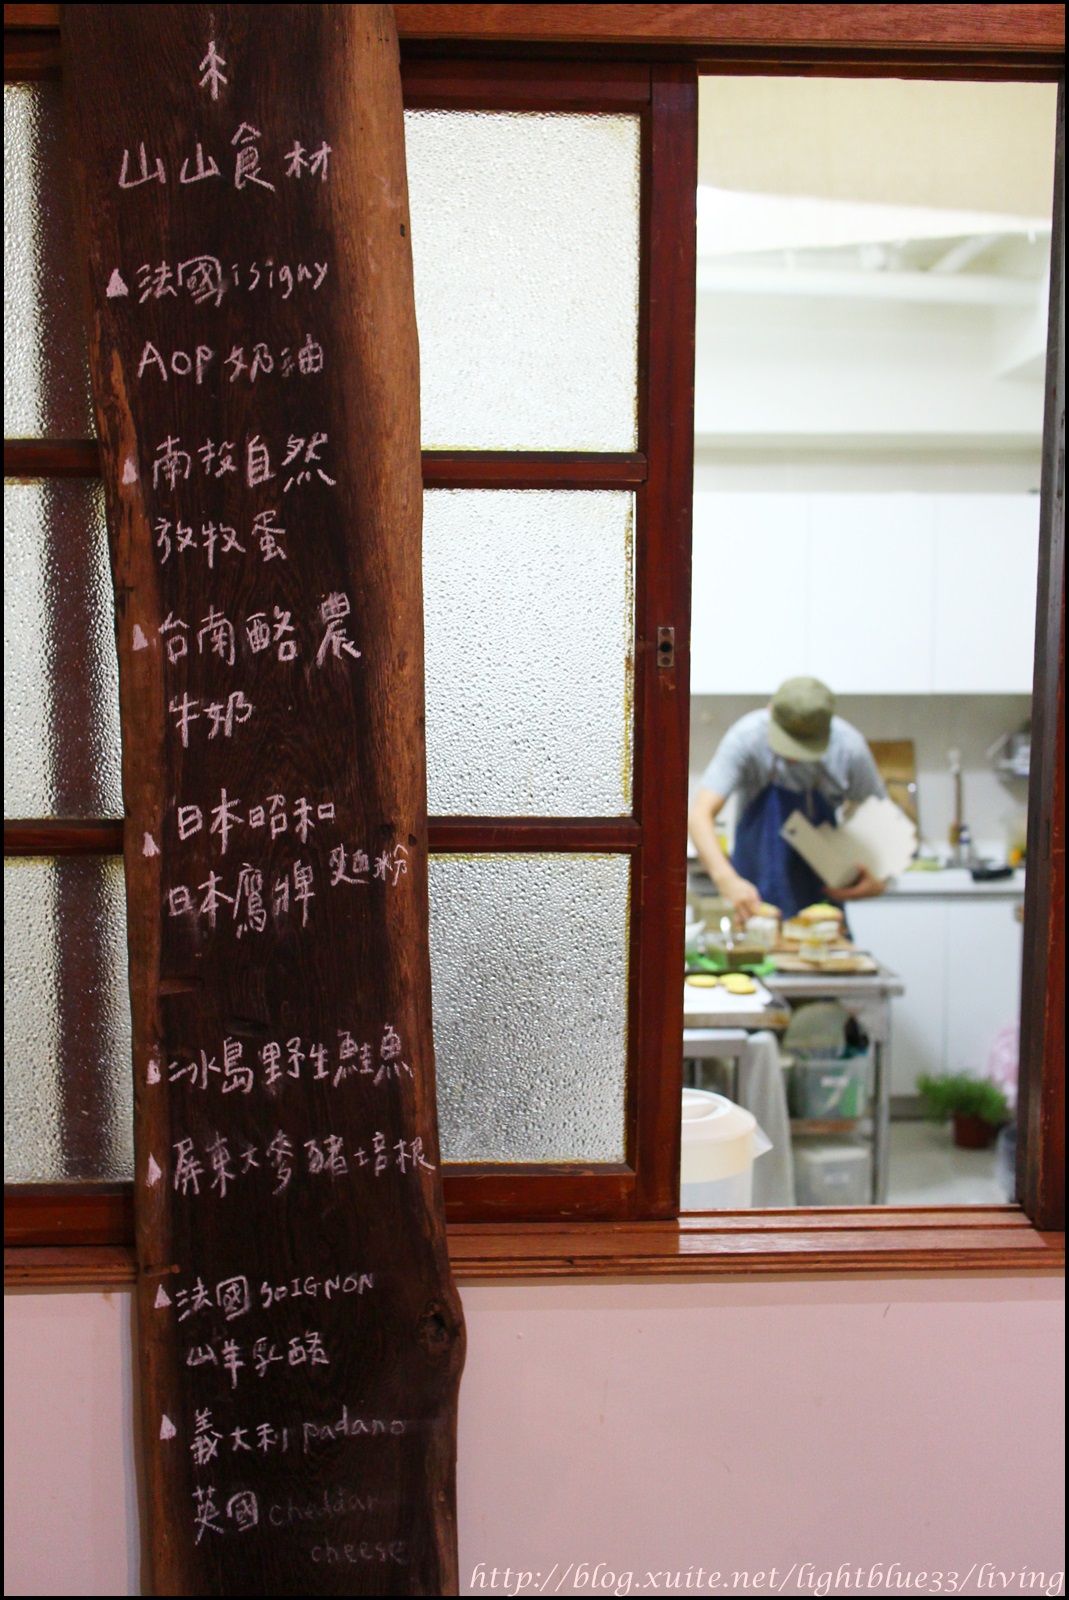 山山食材
法國isigny
AOP奶油
南投自然
放牧蛋
台南酪農
牛奶
日本昭和
日本鷹牌 麵粉
冰島野生鮭魚
屏東大麥豬培根
法國SOIGNON
山羊乳酪
義大利padano
英國cheddar
cheese
http://blog.xuite.net/lightblue33/living